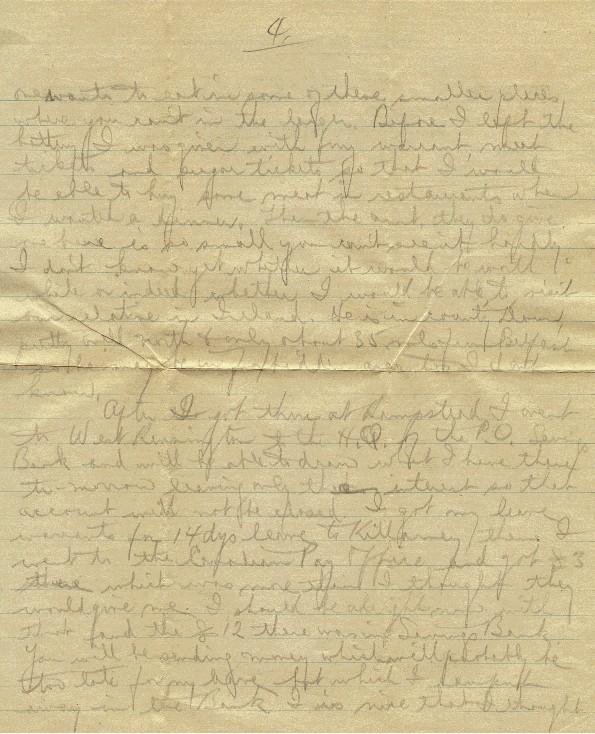 4.
one wants to eat in some of these smaller places
where you can't in the larger. Before I left the
battery I was given with my warrant, meat
tickets and sugar tickets so that I would
be able to buy some meat in restaurants when
I wanted a dinner. Then the amt. they do give
one here is so small you can't see it, hardly
I don't know yet whether it would be worth
while or indeed whether I would be able to visit
our relative in Ireland. He is in county Down,
pretty well north & only about 35 miles from Belfast
I don't
know.
After I got thru at Hampstead I went
to West Kensington to the H.Q. of the P.O. Savings
Bank and will be able to draw what I have there
to-morrow leaving only the interest so that
account will not be closed. I got my leave
warrants for 14 dys leave to Killarney then I
went to the Canadian Pay Office and got £3
there which was more than I thought they
would give me. I should be alright now with
that and the £12 there was in Savings Bank
You will be sending money which will probably be
too late for my leave, but which I can put
away in the Bank. I is nice that I thought